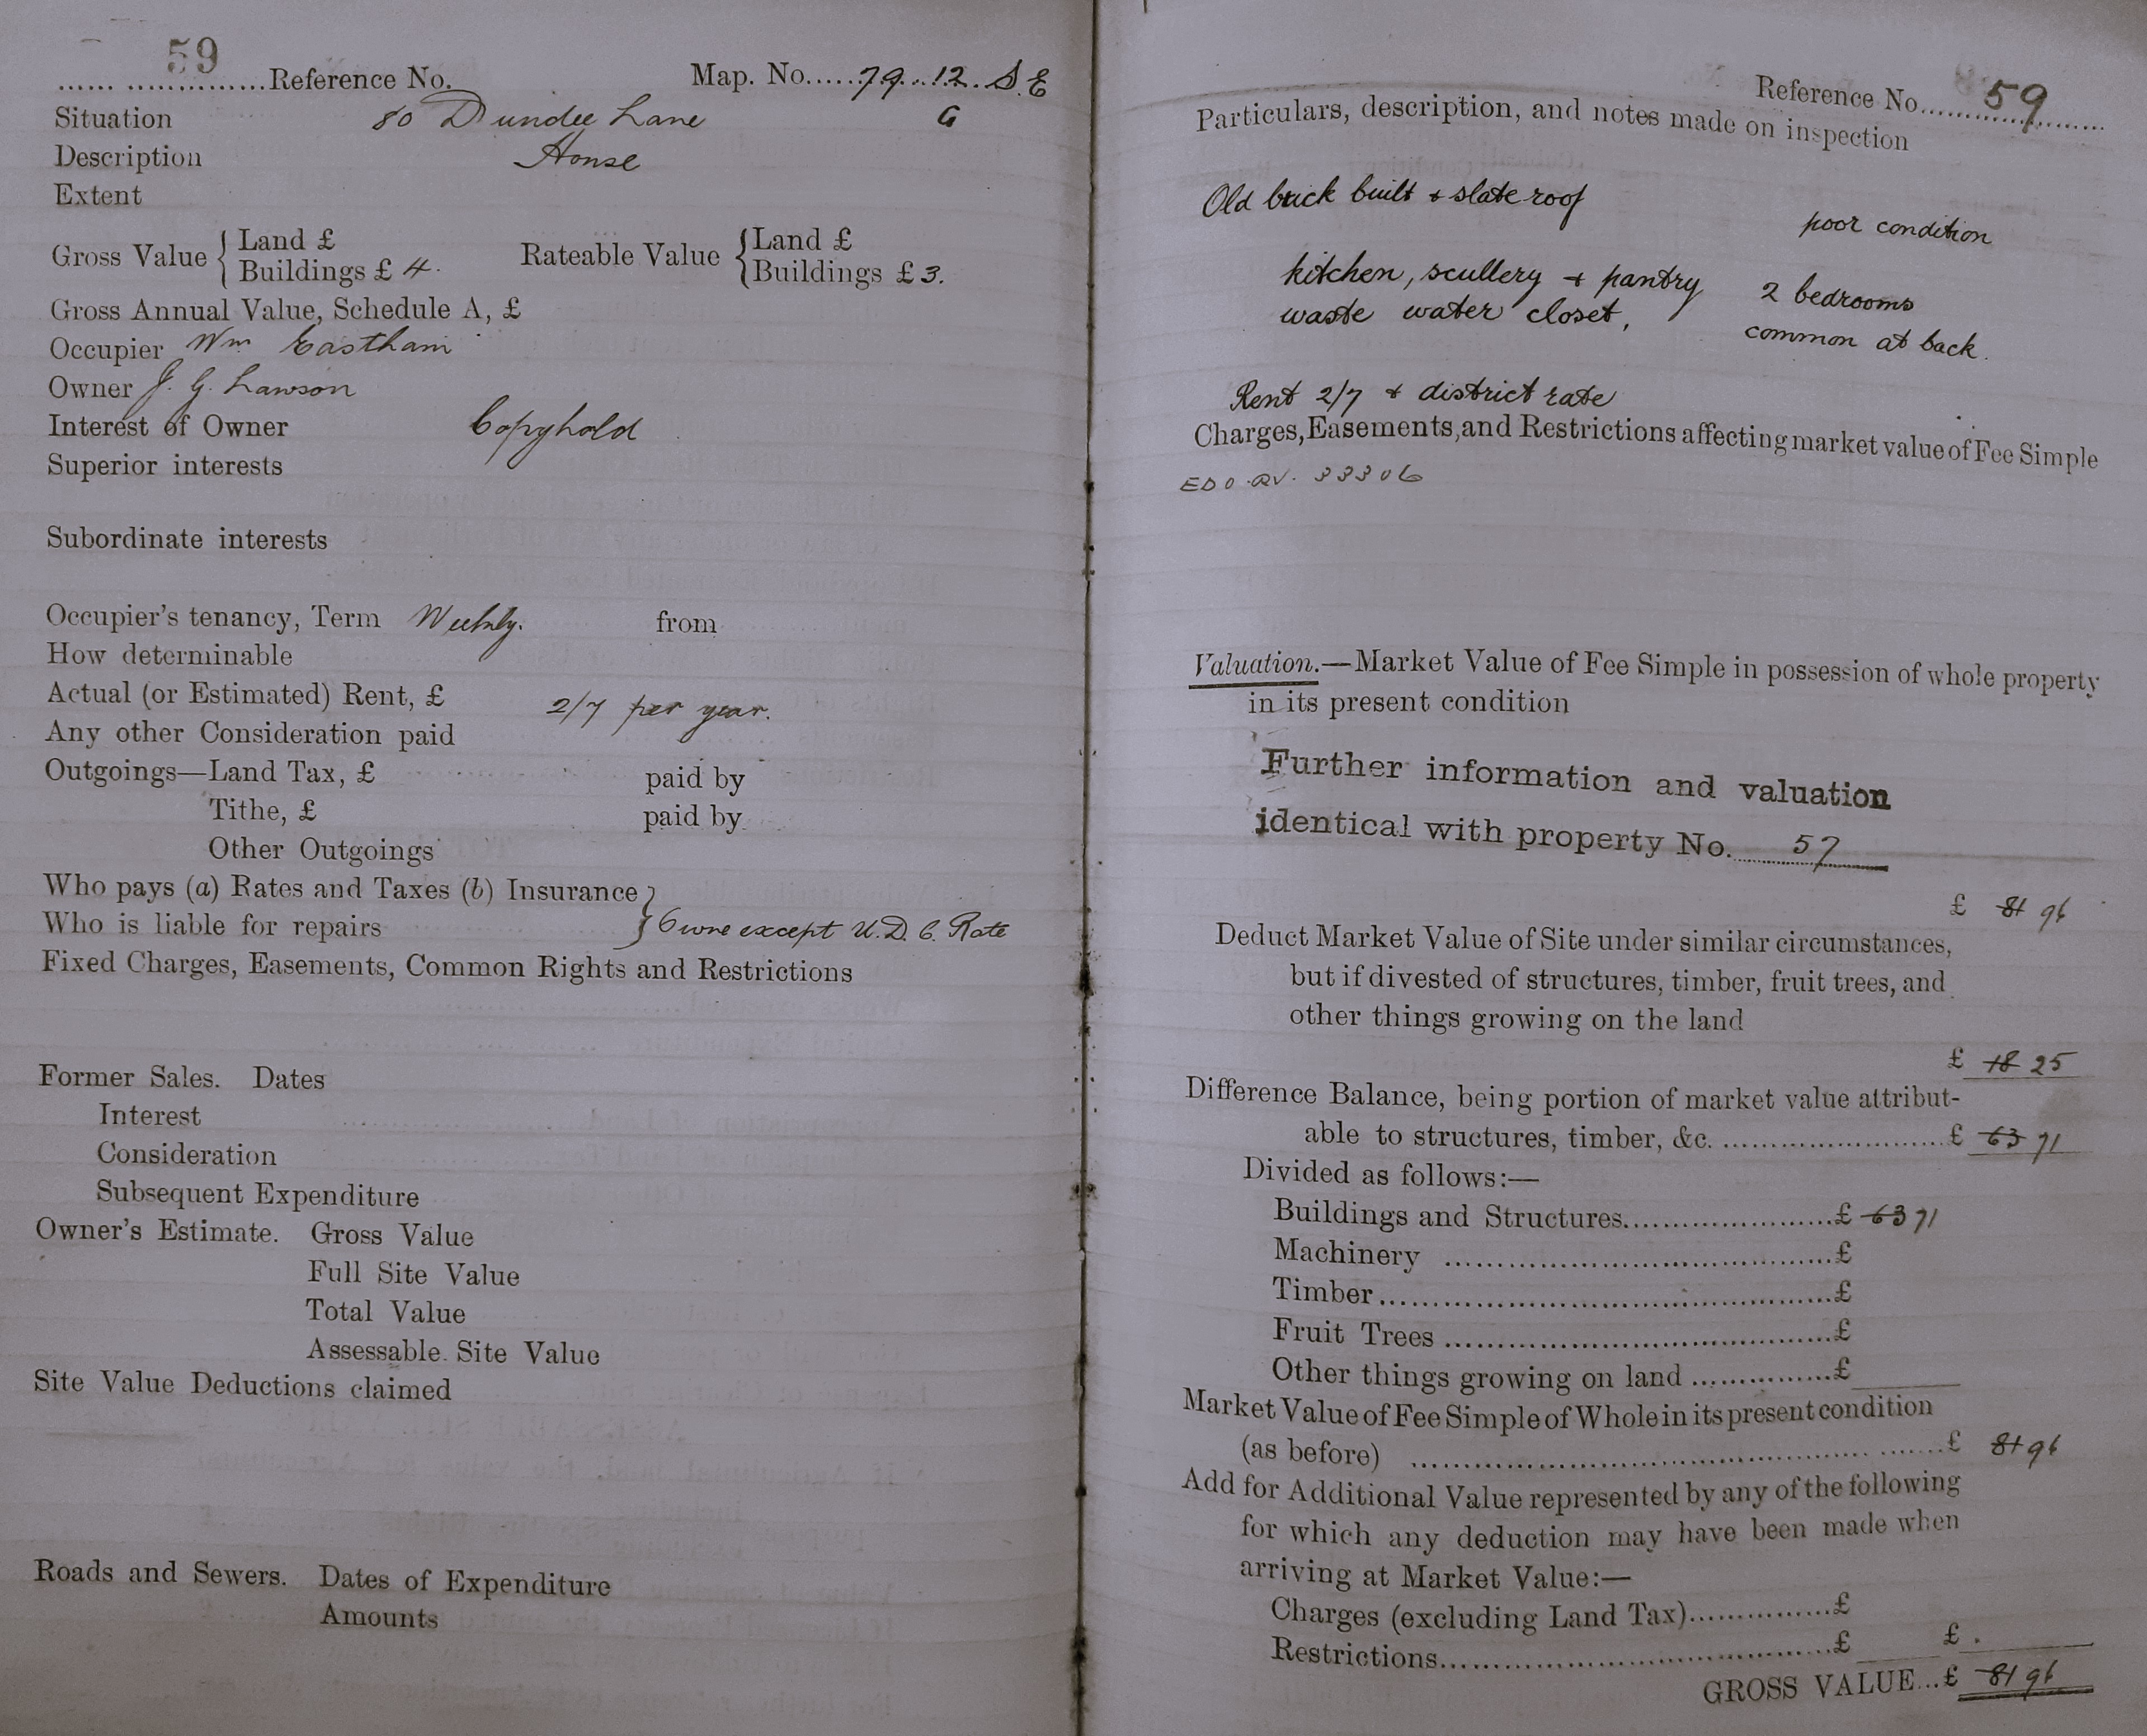 59
...... ...............Reference No. Map. No.....79..12..S.E
Situation 80 Dundee Lane G
Description House
Extent
Gross Value { Land £ Rateable Value { Land £
Buildings £ 4. Buildings £ 3.
Gross Annual Value, Schedule A, £
Occupier Wm Eastham
Owner J. G. Lawson
Interest of Owner Copyhold
Superior interests
Subordinate interests
Occupier's tenancy, Term Weekly. from
How determinable
Actual (or Estimated) Rent, £ 2/7 per year.
Any other Consideration paid
Outgoings—Land Tax, £ paid by
Tithe, £ paid by
Other Outgoings
Who pays (a) Rates and Taxes (b) Insurance }
Who is liable for repairs } Owne except U.D.C. Rate
Fixed Charges, Easements, Common Rights and Restrictions
Former Sales. Dates
Interest
Consideration
Subsequent Expenditure
Owner's Estimate. Gross Value
Full Site Value
Total Value
Assessable Site Value
Site Value Deductions claimed
Roads and Sewers. Dates of Expenditure
Amounts
Reference No......59......
Particulars, description, and notes made on inspection
Old brick built + slate roof
poor condition
kitchen, scullery + pantry 2 bedrooms
waste water closet, common at back.
Rent 2/7 + district rate
Charges, Easements, and Restrictions affecting market value of Fee Simple
EDO.RV. 33306
Valuation.—Market Value of Fee Simple in possession of whole property
in its present condition
Further information and valuation
identical with property No. 57
£ 81 96
Deduct Market Value of Site under similar circumstances,
but if divested of structures, timber, fruit trees, and
other things growing on the land
£ 18 25
Difference Balance, being portion of market value attribut-
able to structures, timber, &c. ........................£ 63 71
Divided as follows:—
Buildings and Structures......................£ 63 71
Machinery ......................................£
Timber.............................................£
Fruit Trees ......................................£
Other things growing on land ..............£
Market Value of Fee Simple of Whole in its present condition
(as before) ......................................................£ 81 96
Add for Additional Value represented by any of the following
for which any deduction may have been made when
arriving at Market Value:—
Charges (excluding Land Tax)..............£
Restrictions......................................£ £ .
GROSS VALUE...£ 81 96